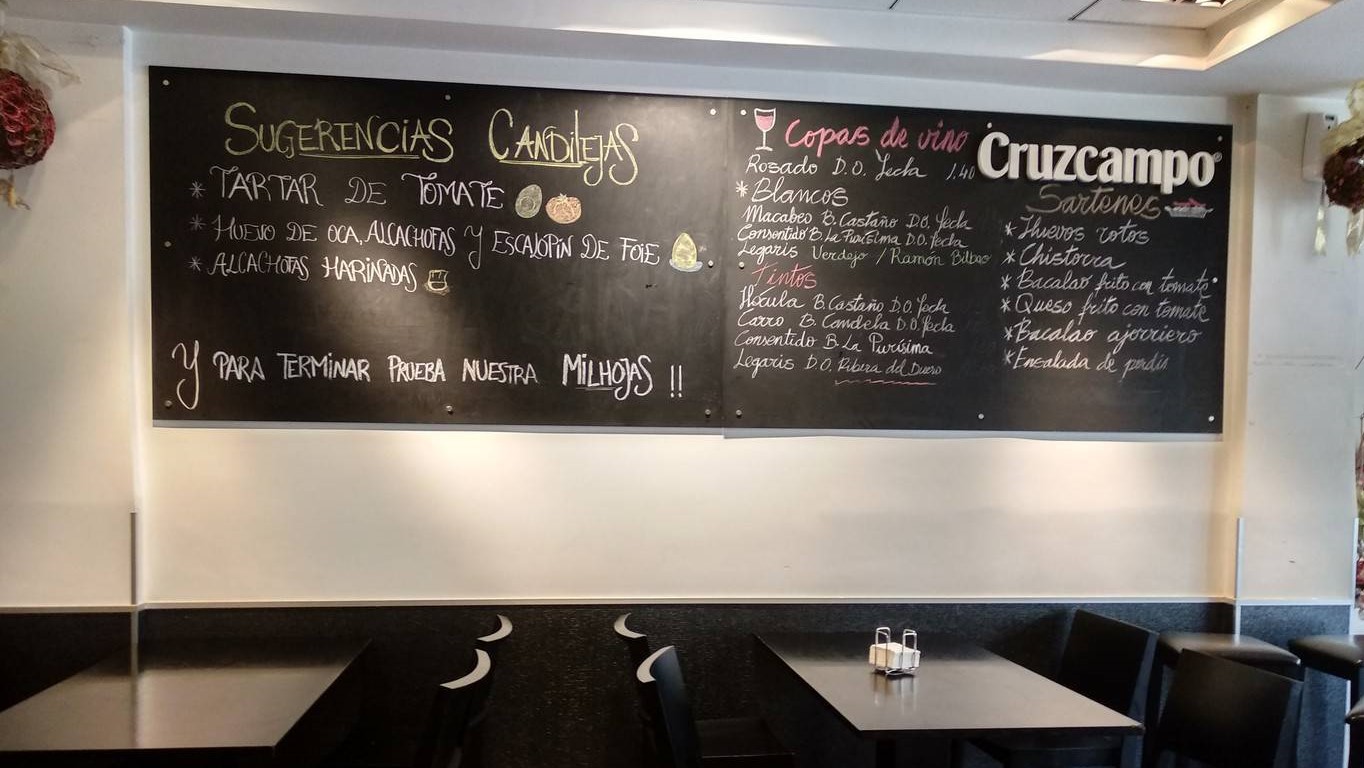 SUGERENCIAS CANDILEJAS
* TARTAR DE TOMATE
* HUEVO DE OCA, ALCACHOFAS Y ESCALOPIN DE FOIE
* ALCACHOFAS HARINADAS
Y PARA TERMINAR PRUEBA NUESTRA MILHOJAS !!
Copas de vino
Rosado D.O. Yecla 1.40
* Blancos
Macabeo B. Castaño D.O. Yecla
Consentido B. La Purísima D.O. Yecla
Legaris Verdejo / Ramón Bilbao
Tintos
Hécula B. Castaño D.O. Yecla
Carro B. Candela D.O. Yecla
Consentido B. La Purísima
Legaris D.O. Ribera del Duero
Cruzcampo®
Sartenes
* Huevos rotos
* Chistorra
* Bacalao frito con tomate
* Queso frito con tomate
* Bacalao ajorriero
* Ensalada de perdis